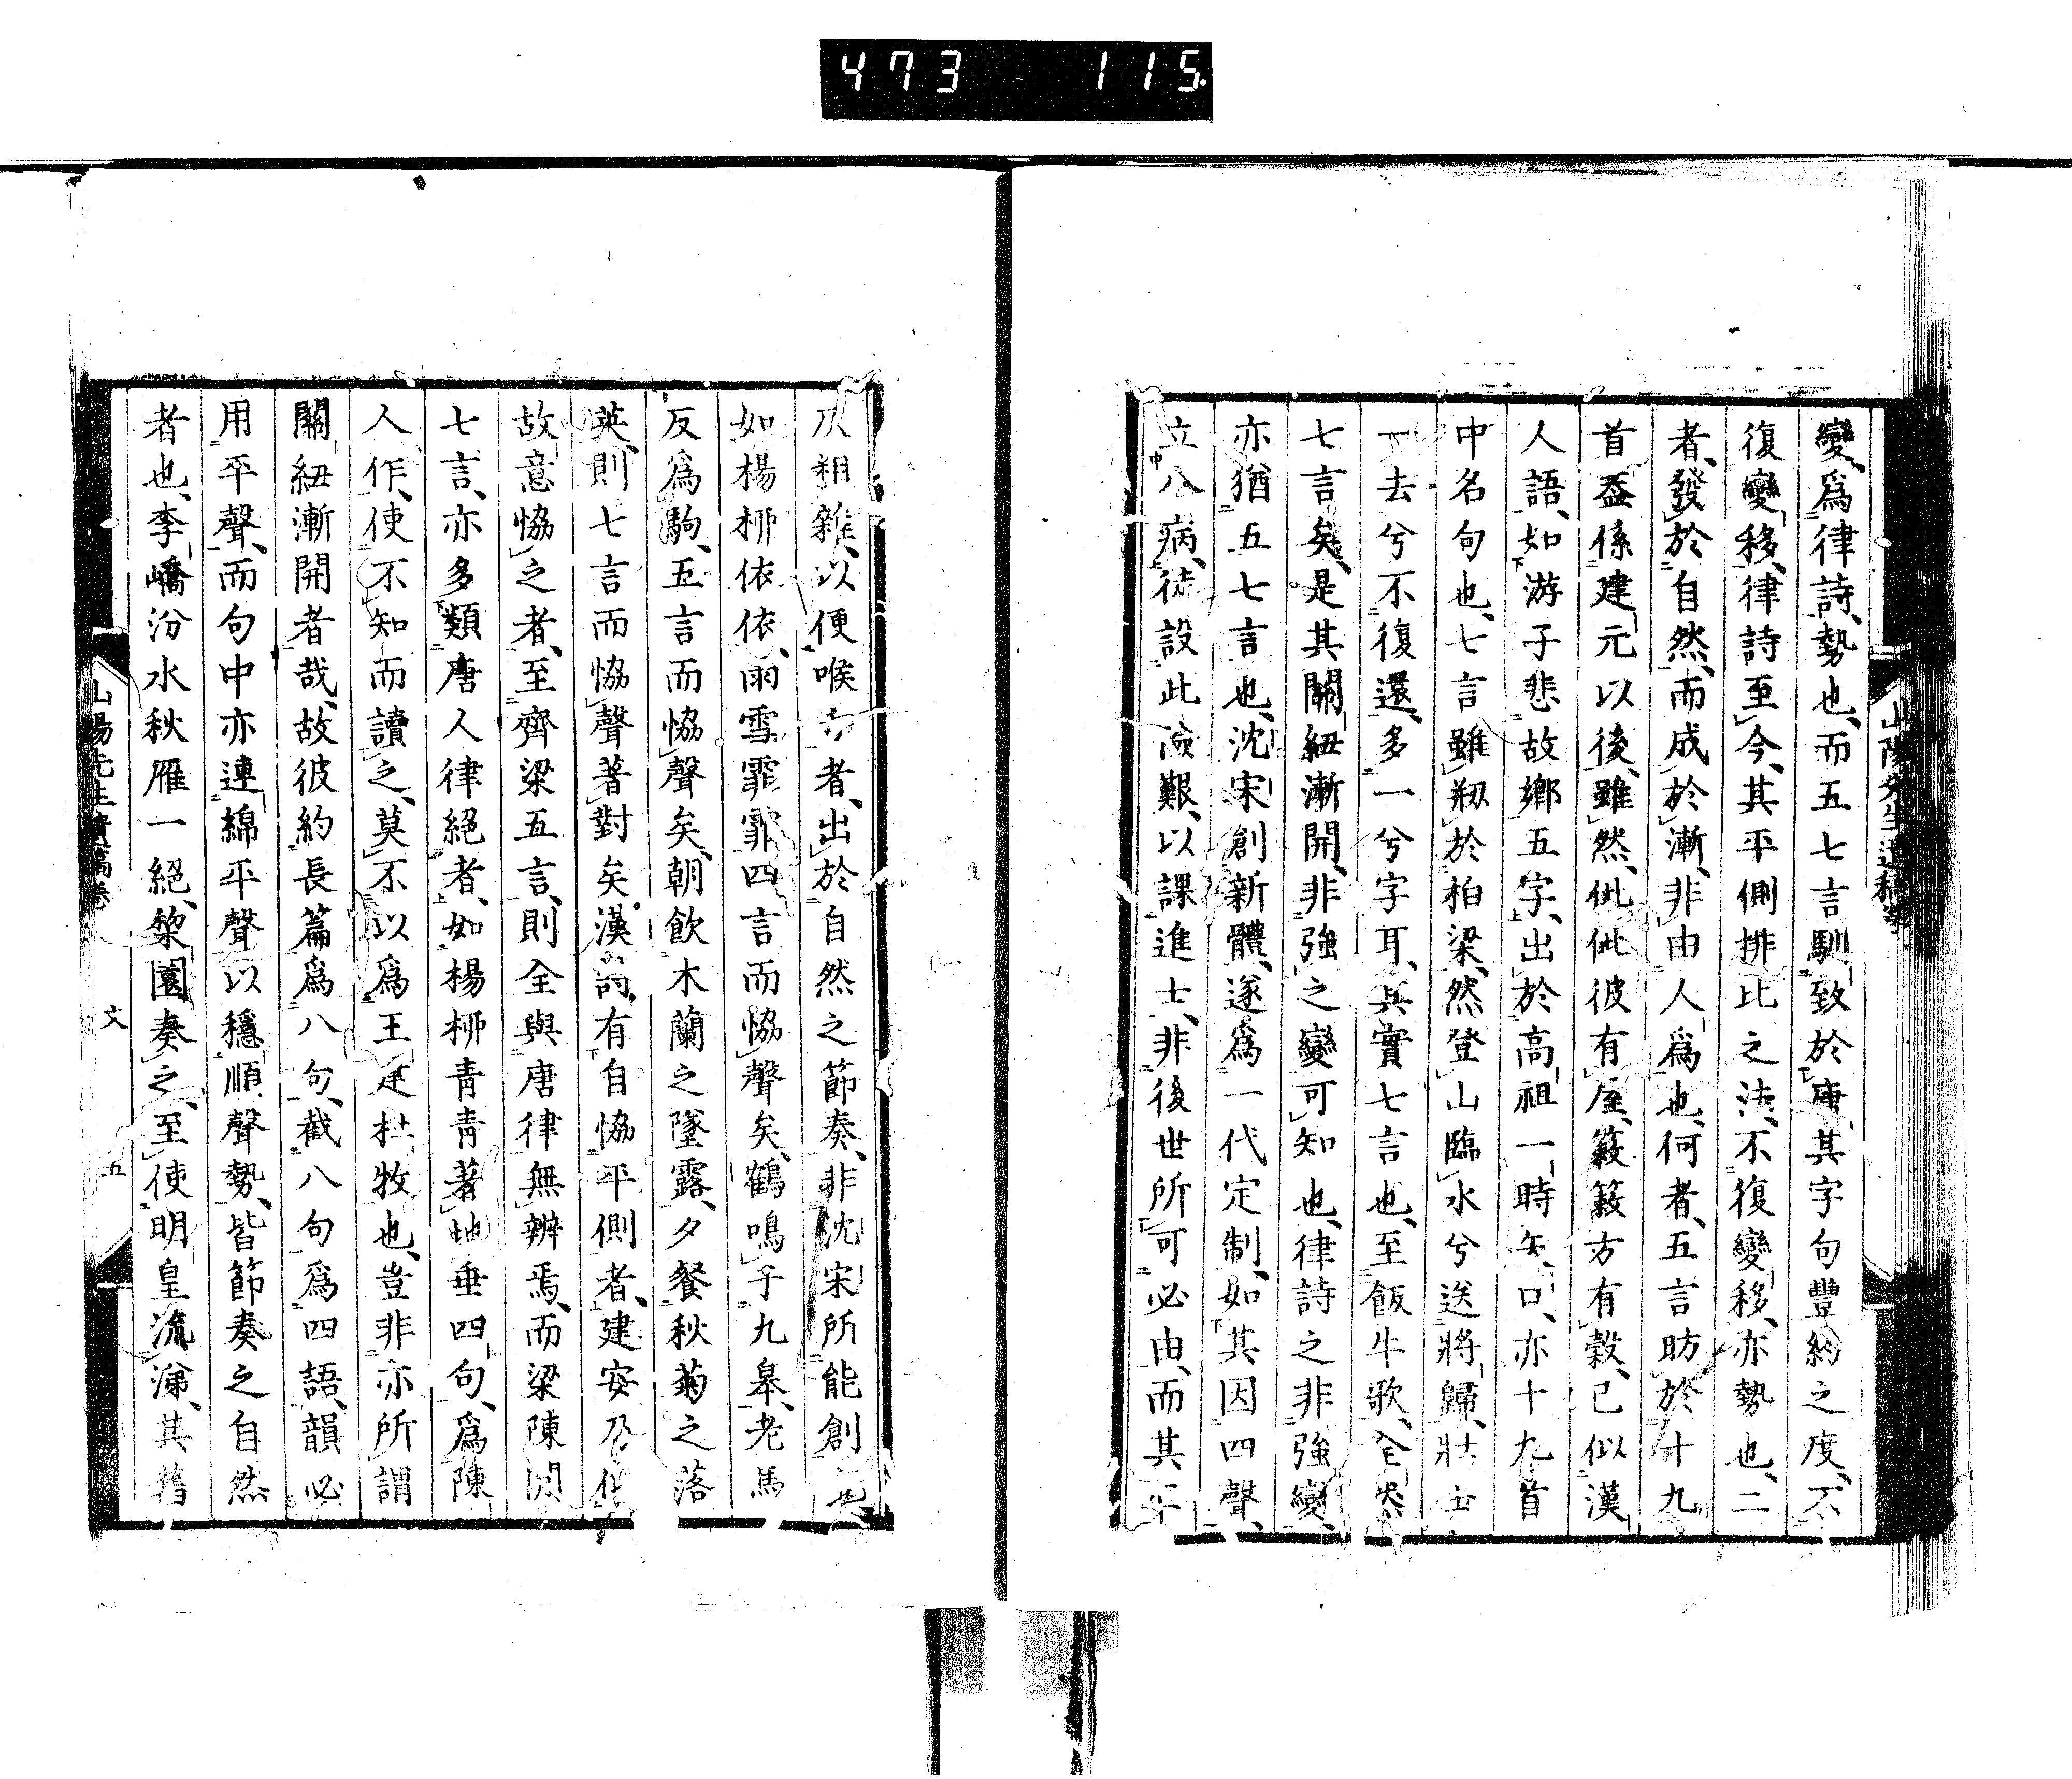 473 115
山陽先生遺稿卷
變、爲律詩、勢也、而五七言馴致於唐、其字句豐約之度、不
復變移、律詩至今、其平側排比之法、不復變移、亦勢也、二
者、發於自然、而成於漸、非由人爲也、何者、五言昉於十九
首、蓋係建元以後、雖然、仳仳彼有屋、蔌蔌方有穀、已似漢
人語、如游子悲故鄉五字、出於高祖一時矢口、亦十九首
中名句也、七言雖剏於柏梁、然登山臨水兮送將歸、壯士
一去兮不復還、多一兮字耳、其實七言也、至飯牛歌、全然
七言矣、是其關紐漸開、非強之變可知也、律詩之非強變、
亦猶五七言也、沈宋創新體、遂爲一代定制、如其因四聲、
立八病、徒設此險艱、以課進士、非後世所可必由、而其平
仄相雜、以便喉吻者、出於自然之節奏、非沈宋所能創也、
如楊柳依依、雨雪霏霏、四言而恊聲矣、鶴鳴于九皋、老馬
反爲駒、五言而恊聲矣、朝飲木蘭之墜露、夕餐秋菊之落
英、則七言而恊聲著對矣、漢詩有自恊平側者、建安乃
故意恊之者、至齊梁五言、則全與唐律無辨焉、而梁陳間
七言、亦多類唐人律絕者、如楊柳青青著地垂四句、爲陳
人作、使不知而讀之、莫不以爲王建杜牧也、豈非亦所謂
關紐漸開者哉、故彼約長篇爲八句、截八句爲四語、韻必
用平聲、而句中亦連綿平聲、以穩順聲勢、皆節奏之自然
者也、李嶠汾水秋雁一絕、棃園奏之、至使明皇流涕、其舊
山陽先生遺稿卷 文 五